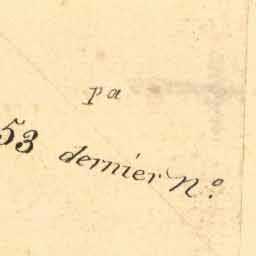 pa
53 dernier No.